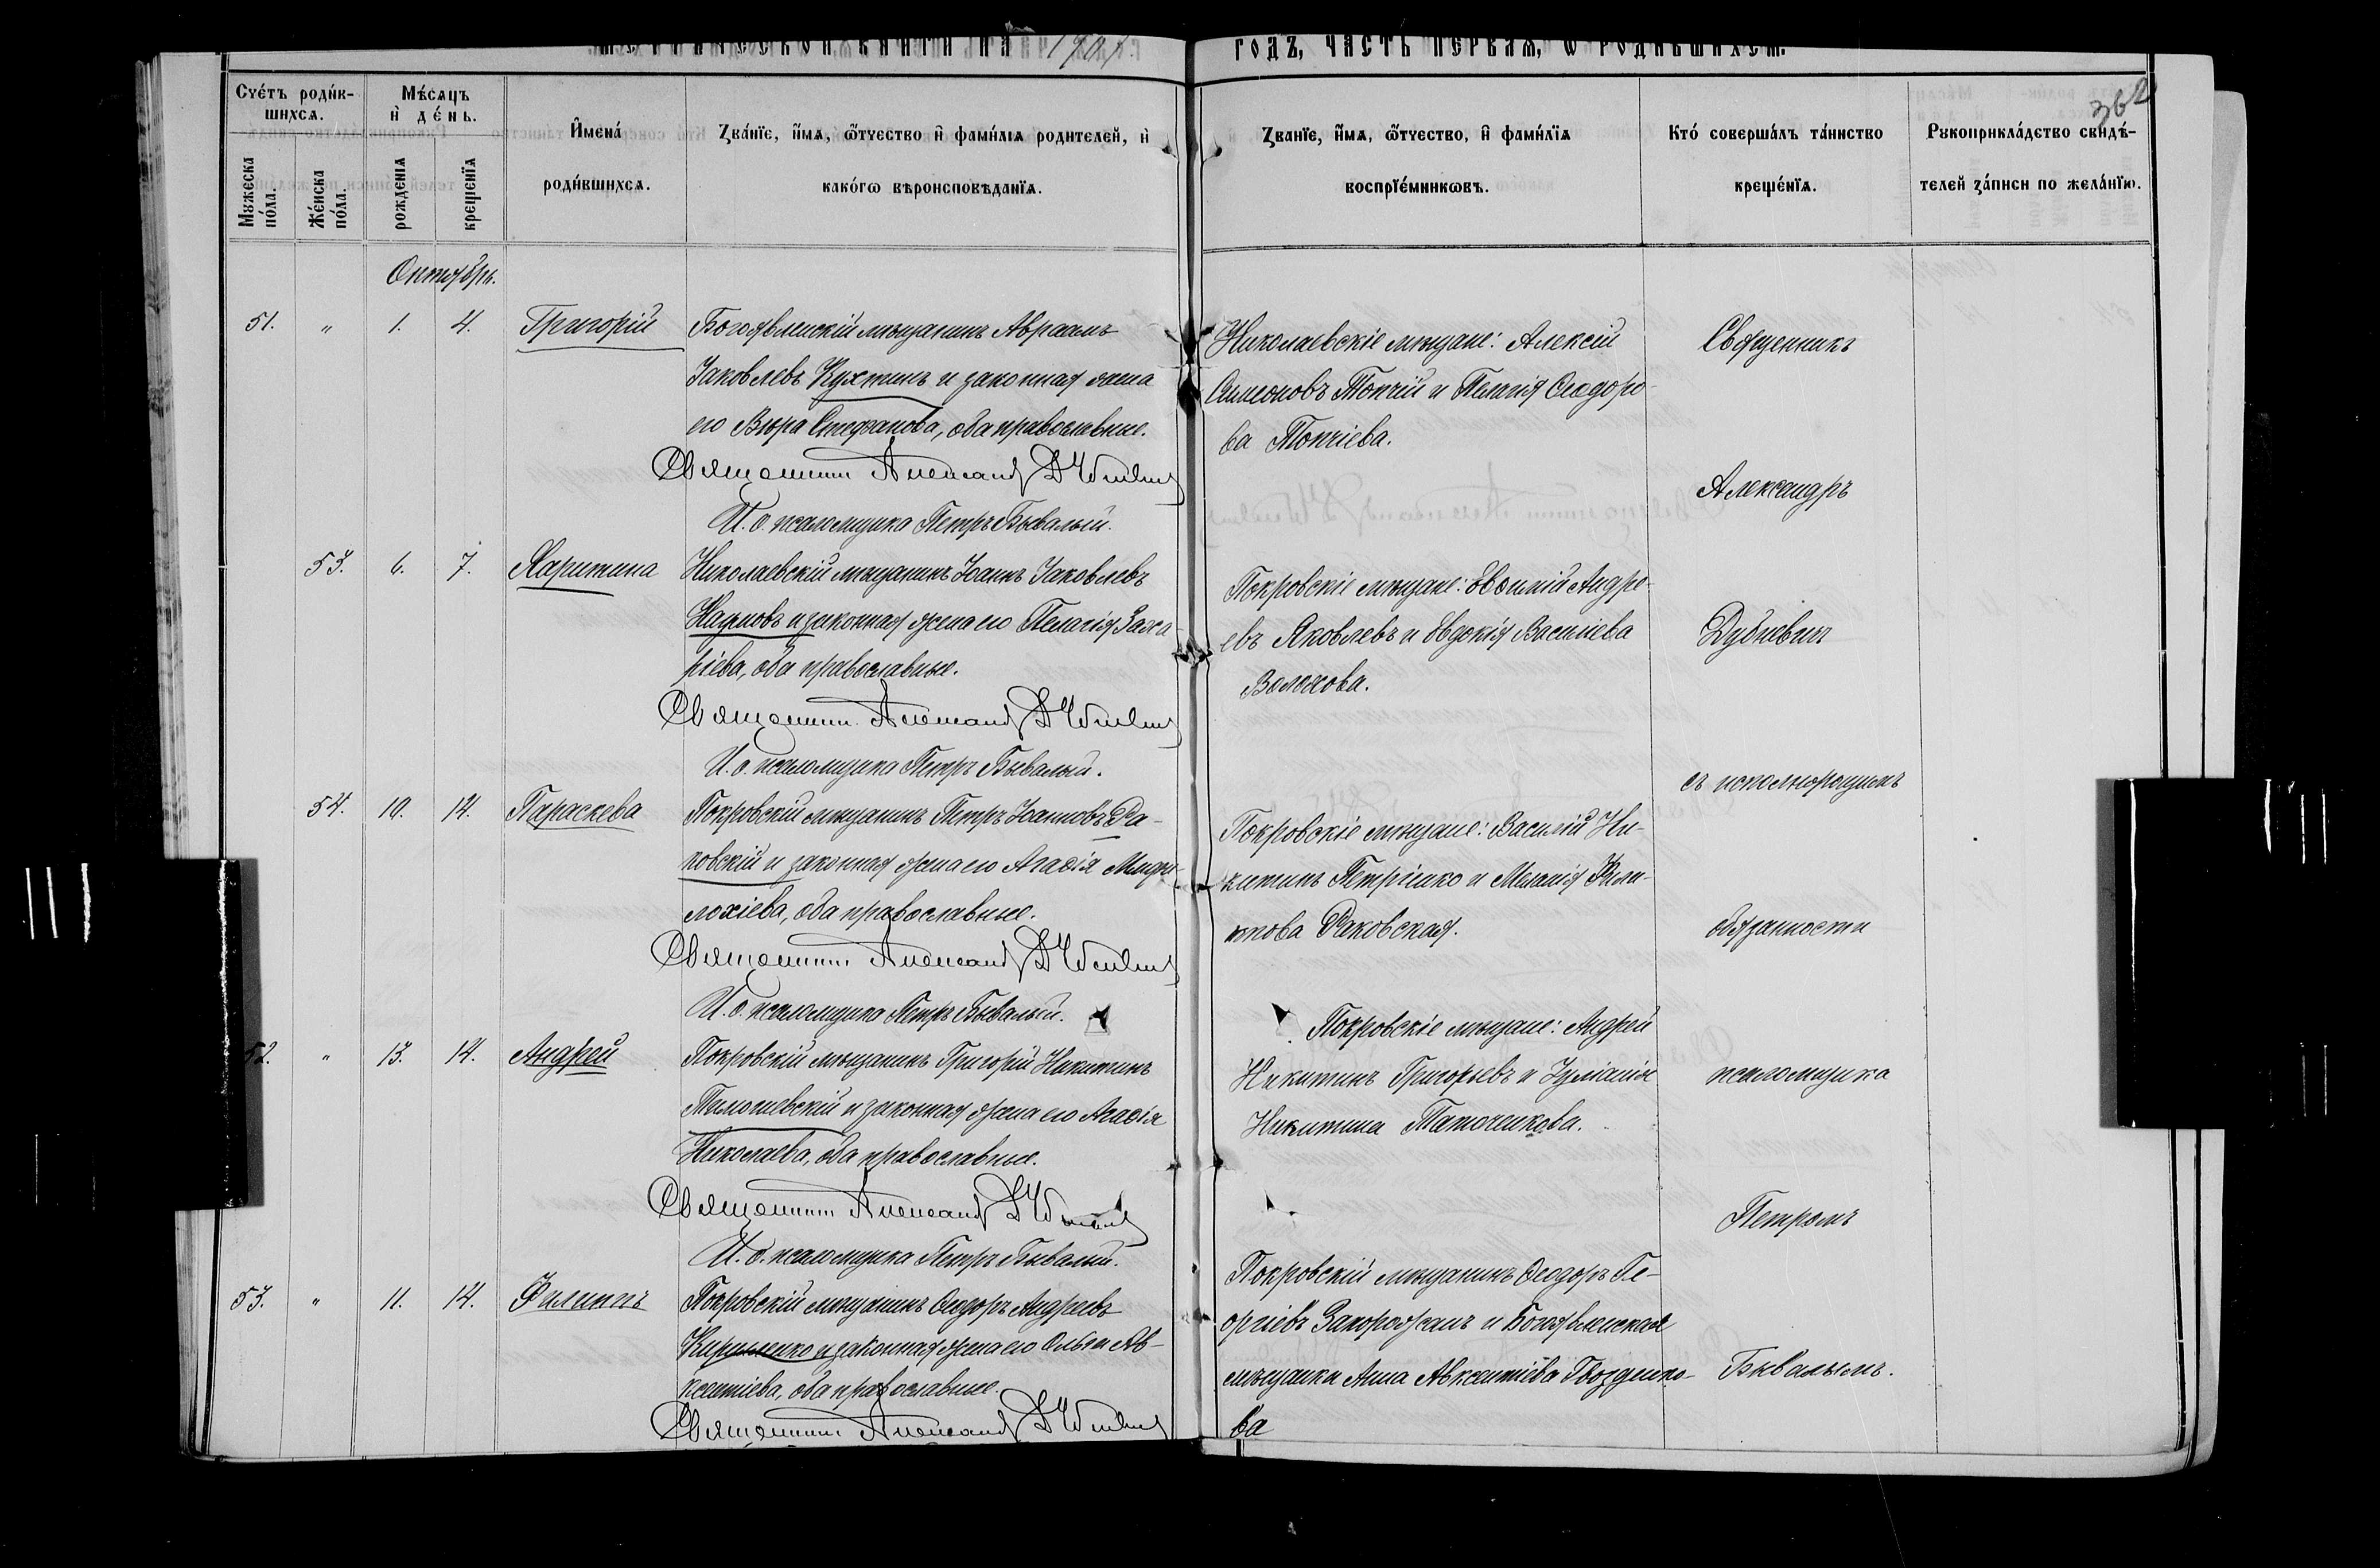 МЕТРИЧЕСКОЙ КНИГИ НА 1901
ГОДЪ, ЧАСТЬ ПЕРВАЯ, Ѡ РОДИВШИХСЯ.
362
Сче́тъ роди́в-
шихся.
Му́жеска по́ла.
Же́нска по́ла.
Мѣ́сяцъ
и҆ де́нь.
рожденїя
крещенїя
И҆мена́
роди́вшихся.
Зва́нїе, и҆́мя, ѻ҆́тчество и҆ фамі́лїя родителей, и҆
како́гѡ вѣроисповѣданїя.
Зва́нїе, и҆́мя, ѻ҆́тчество, и҆ фамі́лїя
воспрїе́мникѡвъ.
Кто́ соверша́лъ та́инство
креще́нїя.
Рукоприкла́дство свидѣ́-
телей за́писи по жела́нїю.
Октябрь.
51. " 1. 4. Григорій
Богоявленскій мѣщанинъ Авраамъ
Іаковлевъ Кухтинъ и законная жена
его Вѣра Стефанова, оба православные.
Священникъ Александръ
И. о. псаломщика Петръ Бывалый.
Николаевскіе мѣщане: Алексій
Симеоновъ Топчій и Пелагія Ѳеодоро-
ва Топчіева.
53. 6. 7. Харитина
Николаевскій мѣщанинъ Іоаннъ Іаковлевъ
Наумовъ и законная жена его Пелагія Заха-
ріева, оба православные.
Священникъ Александръ
И. о. псаломщика Петръ Бывалый.
Покровскіе мѣщане: Евѳимій Андре-
евъ Яковлевъ и Евдокія Василіева
Волохова.
54. 10. 14. Параскева
Покровскій мѣщанинъ Петръ Іоанновъ Ра-
ковскій и законная жена его Агаѳія
оба православные.
Священникъ Александръ
И. о. псаломщика Петръ Бывалый.
Покровскіе мѣщане: Василій Ни-
китинъ Петрішко и Меланія Фили-
ппова Раковская.
52. " 13. 14. Андрей
Покровскій мѣщанинъ Григорій Никитинъ
и законная жена его Агаѳія
Николаева, оба православные.
Священникъ Александръ
И. о. псаломщика Петръ Бывалый.
Покровскіе мѣщане: Андрей
Никитинъ Григорьевъ и Іуліанія
Никитина Таточенкова.
53. " 11. 14. Филиппъ
Покровскій мѣщанинъ Ѳеодоръ Андреевъ
Кириленко и законная жена его Ольга Ав-
ксентіева, оба православные.
Священникъ Александръ
Покровскій мѣщанинъ Ѳеодоръ Ге-
оргіевъ Запорожанъ и Богоявленская
мѣщанка Анна Авксентіева Гвозденко-
ва
Священникъ
Александръ
Дубневичъ
съ исполняющимъ
обязанности
псаломщика
Петромъ
Бывалымъ.